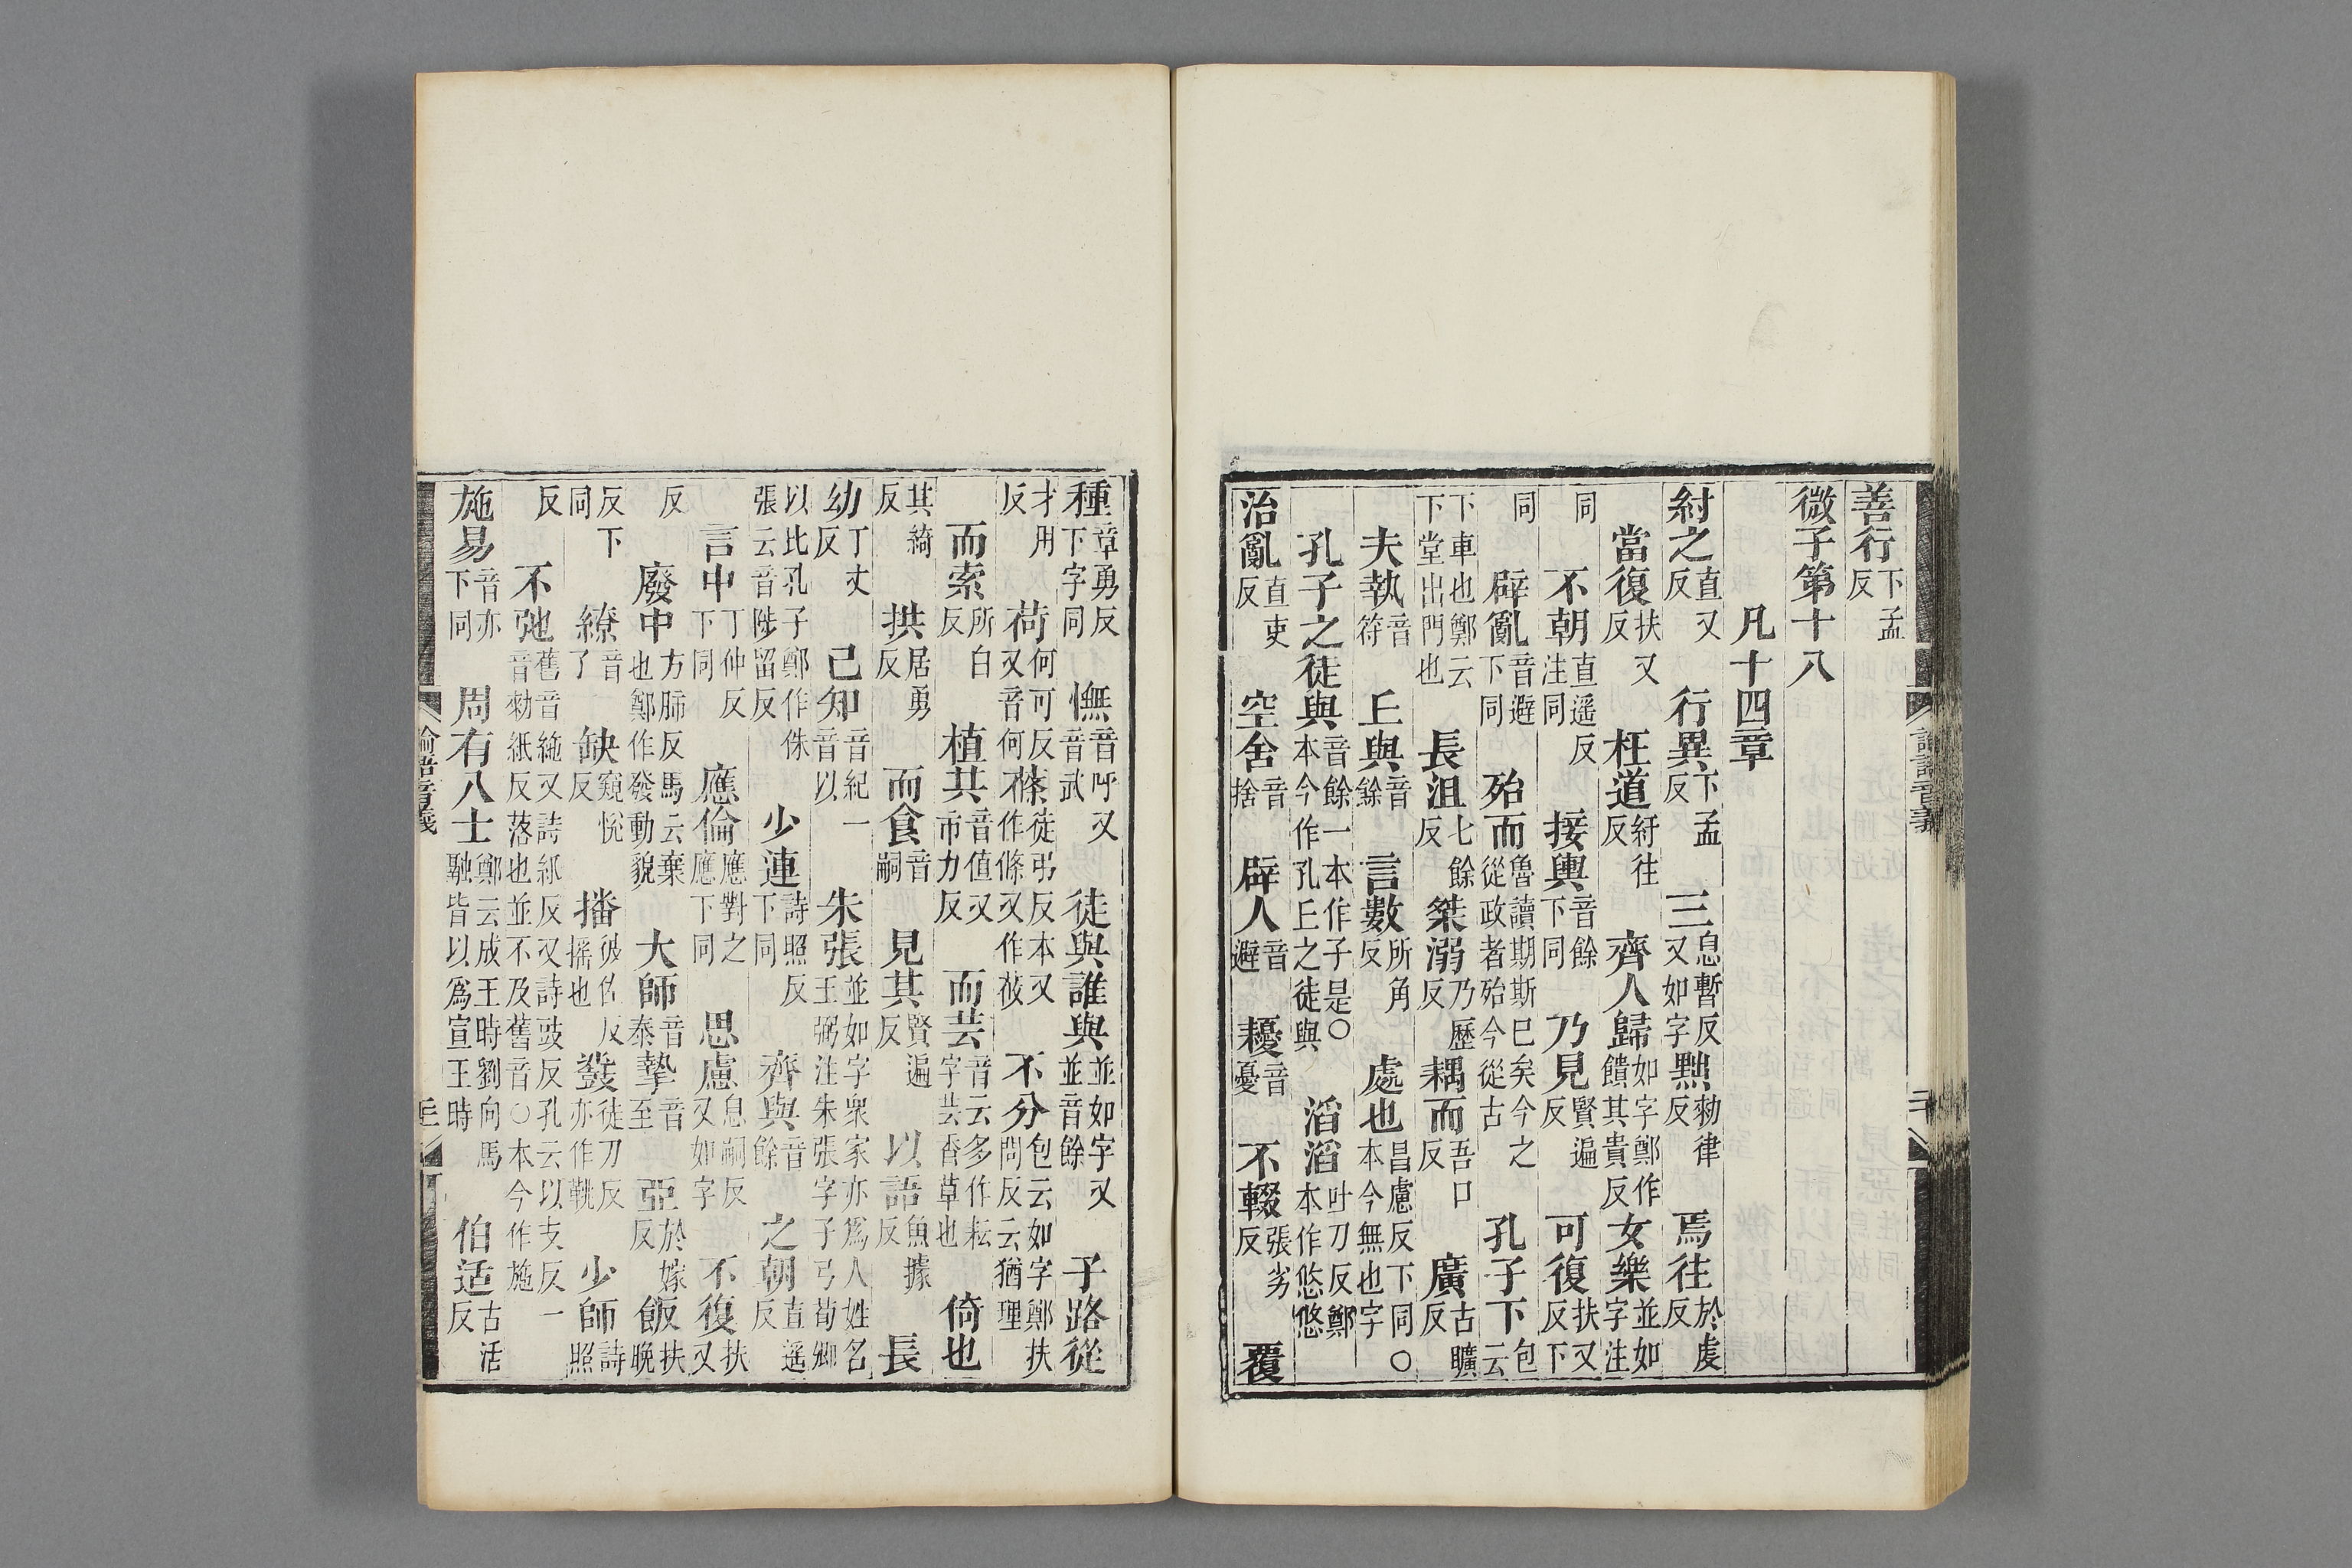 善行下孟反
微子第十八
凡十四章
紂之直又反 行異下孟反 三息暫反又如字 黜勑律反 焉往於虔反
當復扶又反 枉道紆往反 齊人歸如字鄭作饋其貴反 女樂並如字注
同 不朝直遥反注同 接輿音餘下同 乃見賢遍反 可復扶又反下
同 辟亂音避下同 殆而魯讀期斯巳矣今之從政者殆今從古 孔子下包云
下車也鄭云下堂出門也 長沮七餘反 桀溺乃歷反 耦而吾口反 廣古曠反
夫執音符 丘與音餘 言數所角反 處也昌慮反下同○本今無也字
孔子之徒與音餘一本作子是○本今作孔丘之徒與 滔滔吐刀反鄭本作悠悠
治亂直吏反 空舍音捨 辟人音避 耰音憂 不輟張劣反 覆
種章勇反下字同 憮音呼又音武 徒與誰與並如字又並音餘 子路從
才用反 荷何可反又音何 蓧徒弔反本又作條又作莜 不分包云如字鄭扶問反云猶理
而索所白反 植其音值又市力反 而芸音云多作耘字芸香草也 倚也
其綺反 拱居勇反 而食音嗣 見其賢遍反 以語魚據反 長
幼丁丈反 己知音紀一音以 朱張並如字衆家亦爲人姓名王弼注朱張字子弓荀卿
以比孔子鄭作侏張云音陟留反 少連詩照反下同 齊與音餘 之朝直遥反
言中丁仲反下同 應倫應對之應下同 思慮息嗣反又如字 不復扶又
反 廢中方肺反馬云棄也鄭作發動貌 大師音泰 摯音至 亞於嫁反 飯扶晚
反下同 繚音了 缺窺悅反 播彼佐反揺也 鼗徒刀反亦作鞉 少師詩照
反 不弛舊音絁又詩紙反又詩豉反孔云以支反一音勑紙反落也並不及舊音○本今作施
施易音亦下同 周有八士鄭云成王時劉向馬融皆以爲宣王時 伯适古活反